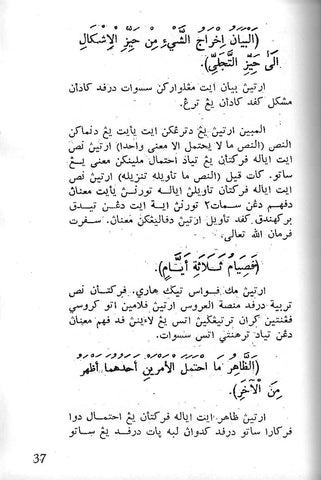 (اَلْبَيَانُ اِخْرَاجُ الشَّيْءِ مِنْ حَيِّزِ الْإِشْكَالِ
اِلَى حَيِّزِ التَّجَلِّيْ).
ارتيڽ بيان ايت مڠلواركن سسوات درفد كادأن
مشكل كفد كادأن يڠ ترڠ.
المبين ارتيڽ يڠ دترڠكن ايت يأيت يڠ دنماكن
النص (النص ما لا يحتمل الا معنى واحدا) ارتيڽ نص
ايت اياله فركتأن يڠ تياد احتمال ملينكن معنى يڠ
ساتو. كات قيل (النص ما تاويله تنزيله) ارتيڽ نص
ايت اياله فركتأن تاويلڽ اياله تورنڽ يأيت معناڽ
دفهم دڠن سمات٢ تورنڽ ايت دڠن تيدق
بركهندق كفد تاويل ارتيڽ دفاليڠكن معناڽ. سفرت
فرمان الله تعالى.
(فَصِيَامُ ثَلَاثَةِ أَيَّامٍ).
ارتيڽ مك فواس تيڬ هاري. فركتأن نص
تربية درفد منصة العروس ارتيڽ فلامين اتو كروسي
فڠنتين كران ترتيڠڬيڽ اتس يڠ لاينڽ فد فهم معناڽ
دڠن تياد ترهنتي اتس سسوات.
(اَلظَّاهِرُ مَا احْتَمَلَ الْأَمْرَيْنِ أحدهما أظهر
مِنَ الْآخَرِ).
ارتيڽ ظاهر ايت اياله فركتأن يڠ احتمال دوا
فركارا ساتو درفد كدوان لبه ڽات درفد يڠ ساتو
37